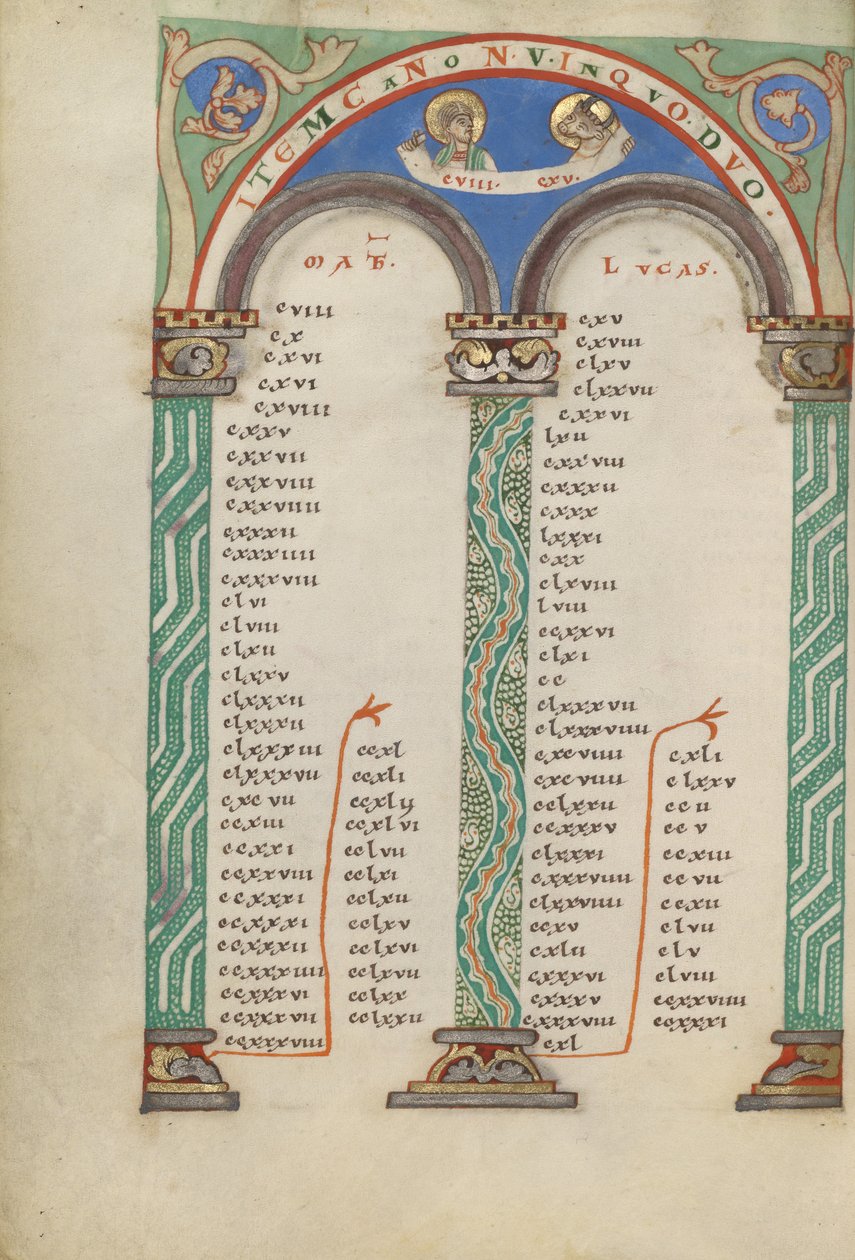 ITEM CANON·V·INQVO·DVO·
cviii· cxv·
MAŦH.
LVCAS.
cviii
cx
cxvi
cxvi
cxviii
cxxv
cxxvii
cxxviii
cxxviiii
cxxxii
cxxxiiii
cxxxviii
clvi
clviii
clxii
clxxv
clxxxii
clxxxii
clxxxiii
clxxxvii
cxcvii
ccxiii
ccxxi
ccxxviii
ccxxxi
ccxxxi
ccxxxii
ccxxxiiii
ccxxxvi
ccxxxvii
ccxxxviii
ccxl
ccxli
ccxlij
ccxlvi
cclvii
cclxi
cclxii
cclxv
cclxvi
cclxvii
cclxx
cclxxii
cxv
cxviii
clxv
clxxvii
cxxvi
lxii
cxxviii
cxxxii
cxxx
lxxxi
cxx
clxviii
lviii
ccxxvi
clxi
cc
clxxxvii
clxxxviiii
cxcviiii
cxcviiii
cclxxii
ccxxxv
clxxxi
cxxxviiii
clxxviiii
ccxv
cxlii
cxxxvi
cxxxv
cxxxviii
cxl
cxli
clxxv
ccii
ccv
ccxiii
ccvii
ccxii
clvii
clv
clviii
ccxxviiii
ccxxxi